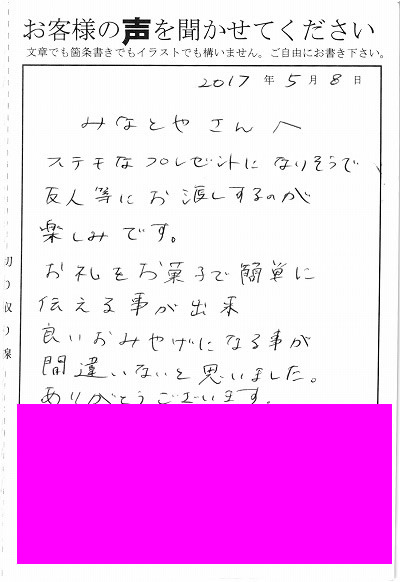 お客様の声を聞かせてください
文章でも箇条書きでもイラストでも構いません。ご自由にお書き下さい。
2017年5月8日
みなとやさんへ
ステキなプレゼントになりそうで
友人等にお渡しするのが
楽しみです。
お礼をお菓子で簡単に
伝える事が出来
良いおみやげになる事が
間違いないと思いました。
ありがとうございます。
切り取り線